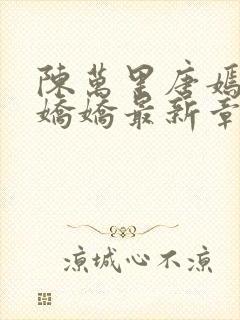 陳萬里唐嫣
嬌嬌最新章
涼城心不涼